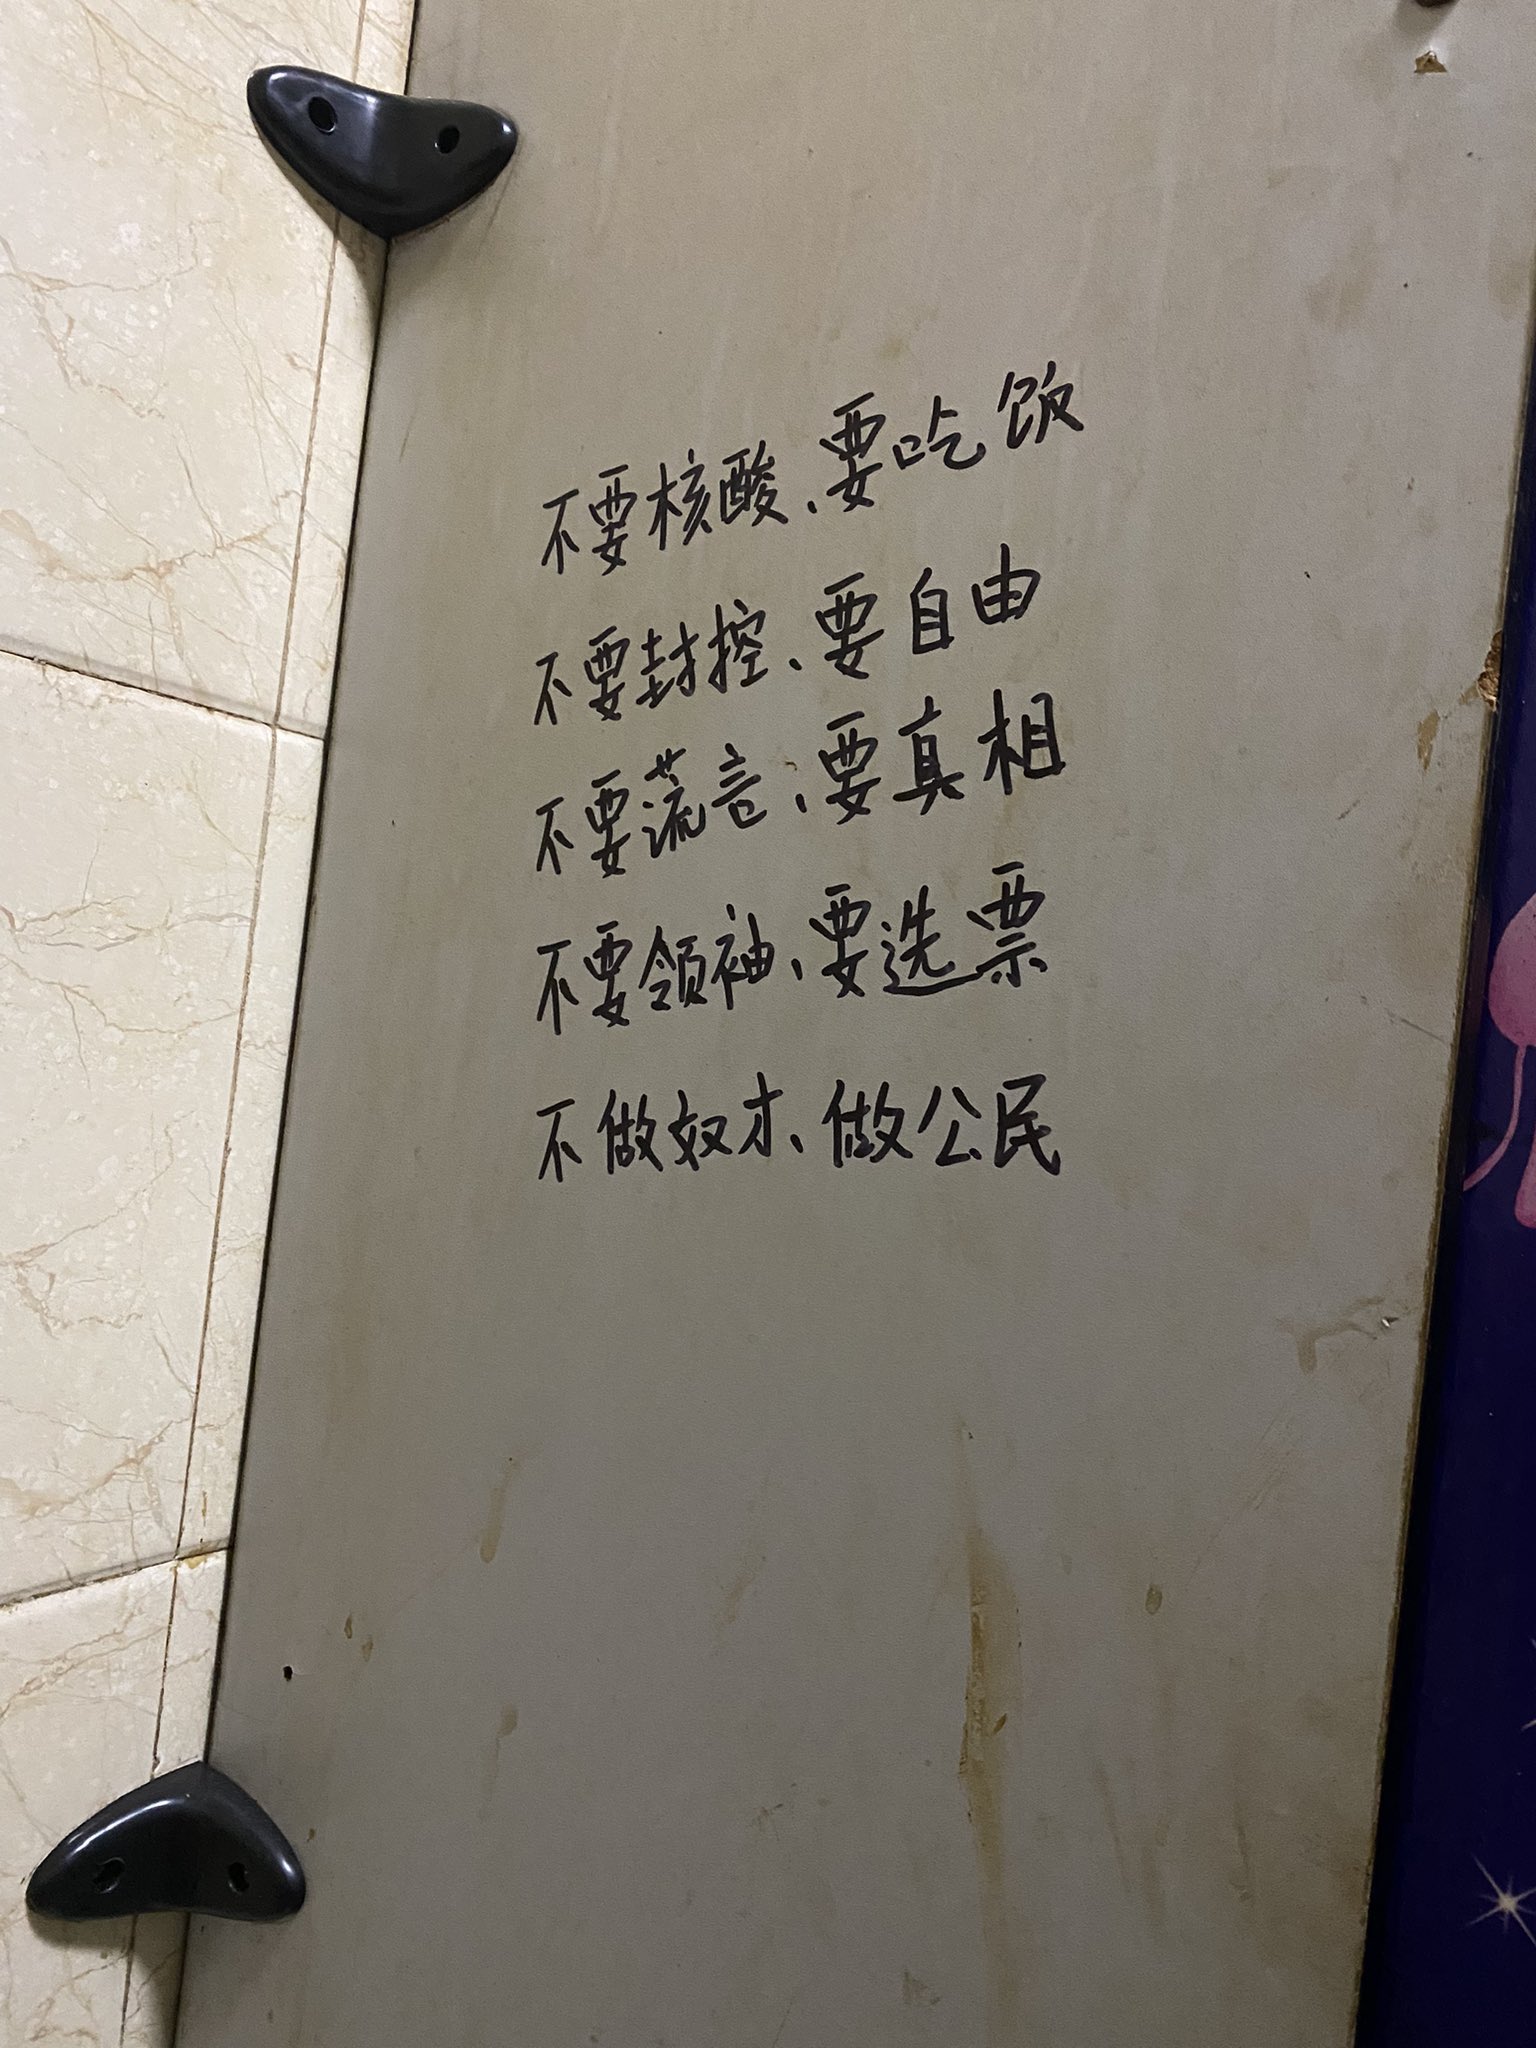 不要核酸、要吃饭
不要封控、要自由
不要谎言、要真相
不要领袖、要选票
不做奴才、做公民